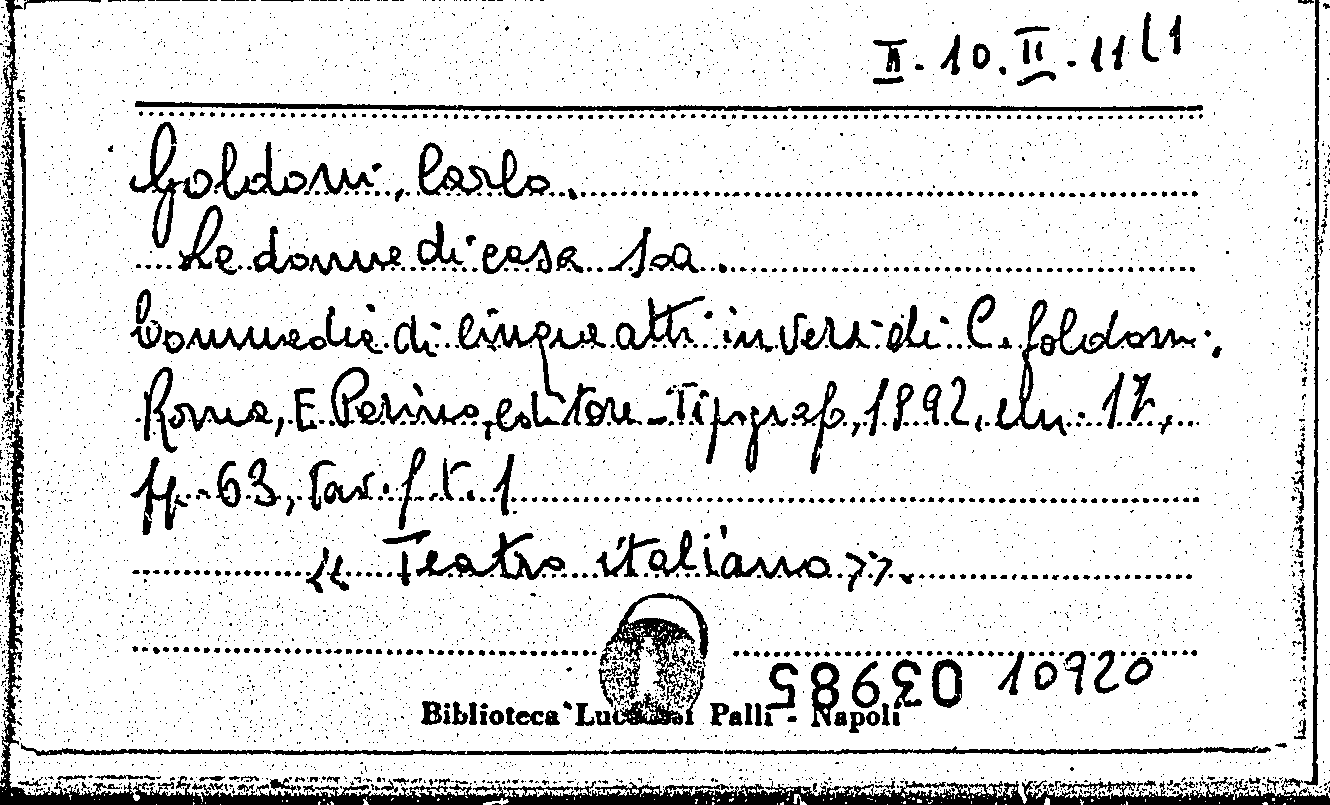 II. 10. II. 11 (1
Goldoni, Carlo.
Le donne di casa soa.
Commedia di cinque atti in versi di C. Goldoni.
Roma, E. Perino, editore-Tipograf., 1892, cm. 17,
pp. 63, tav. f. t. 1
« Teatro italiano ».
039985 10920
Biblioteca Lucchesi Palli - Napoli